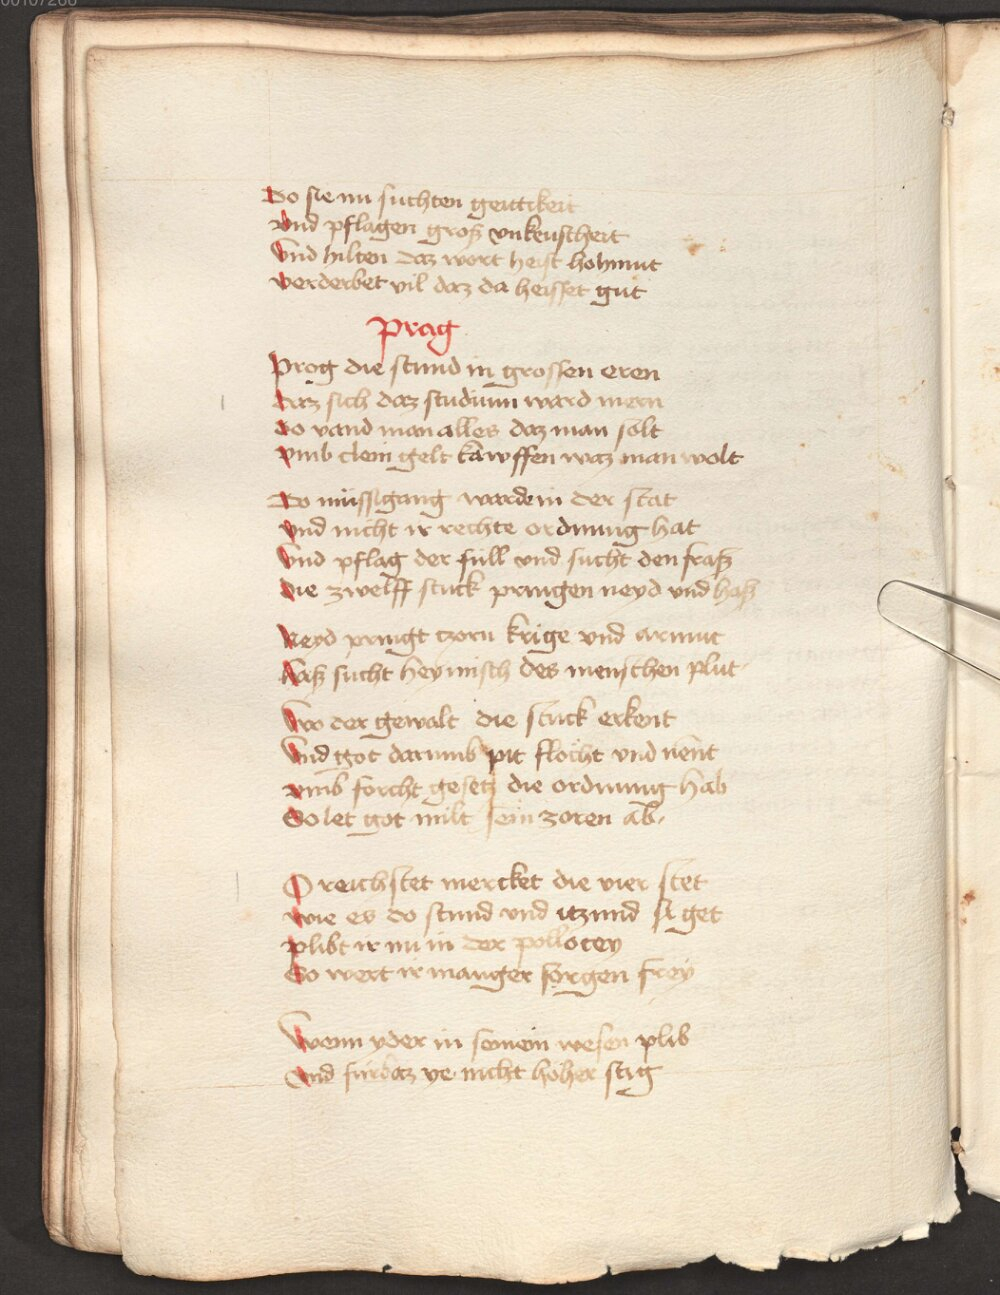 00107266
Do sie nu suchten geittikeit
vnd pflagen groß vnkeuscheit
Vnd hilten daz wort heist hohmut
verderbet vil daz da heisset gut
Prag
Prog die stund in grossen eren
daz sich daz studium ward mern
do vand man alles daz man solt
vmb clein gelt kawffen waz man wolt
Do müssigang ward in der stat
vnd nicht ir rechte ordnung hat
Vnd pflag der füll vnd sucht den fraß
die zwelff stuck pringen neyd vnd haß
Neyd pringt czorn krige vnd armut
haß sucht heymisch des menschen plut
Wo der gewalt die stuck erkent
Vnd got darumb pit flocht vnd nent
vmb forcht gesetz die ordnung hab
So let got milt sein zoren ab
O reichstet mercket die vier stet
wie es do stund vnd itzund get
plibt ir nu in der pollocey
So wert ir manger sorgen frey
Wenn yder in seinem wesen plib
Vnd fürdaz ye nicht höher stig